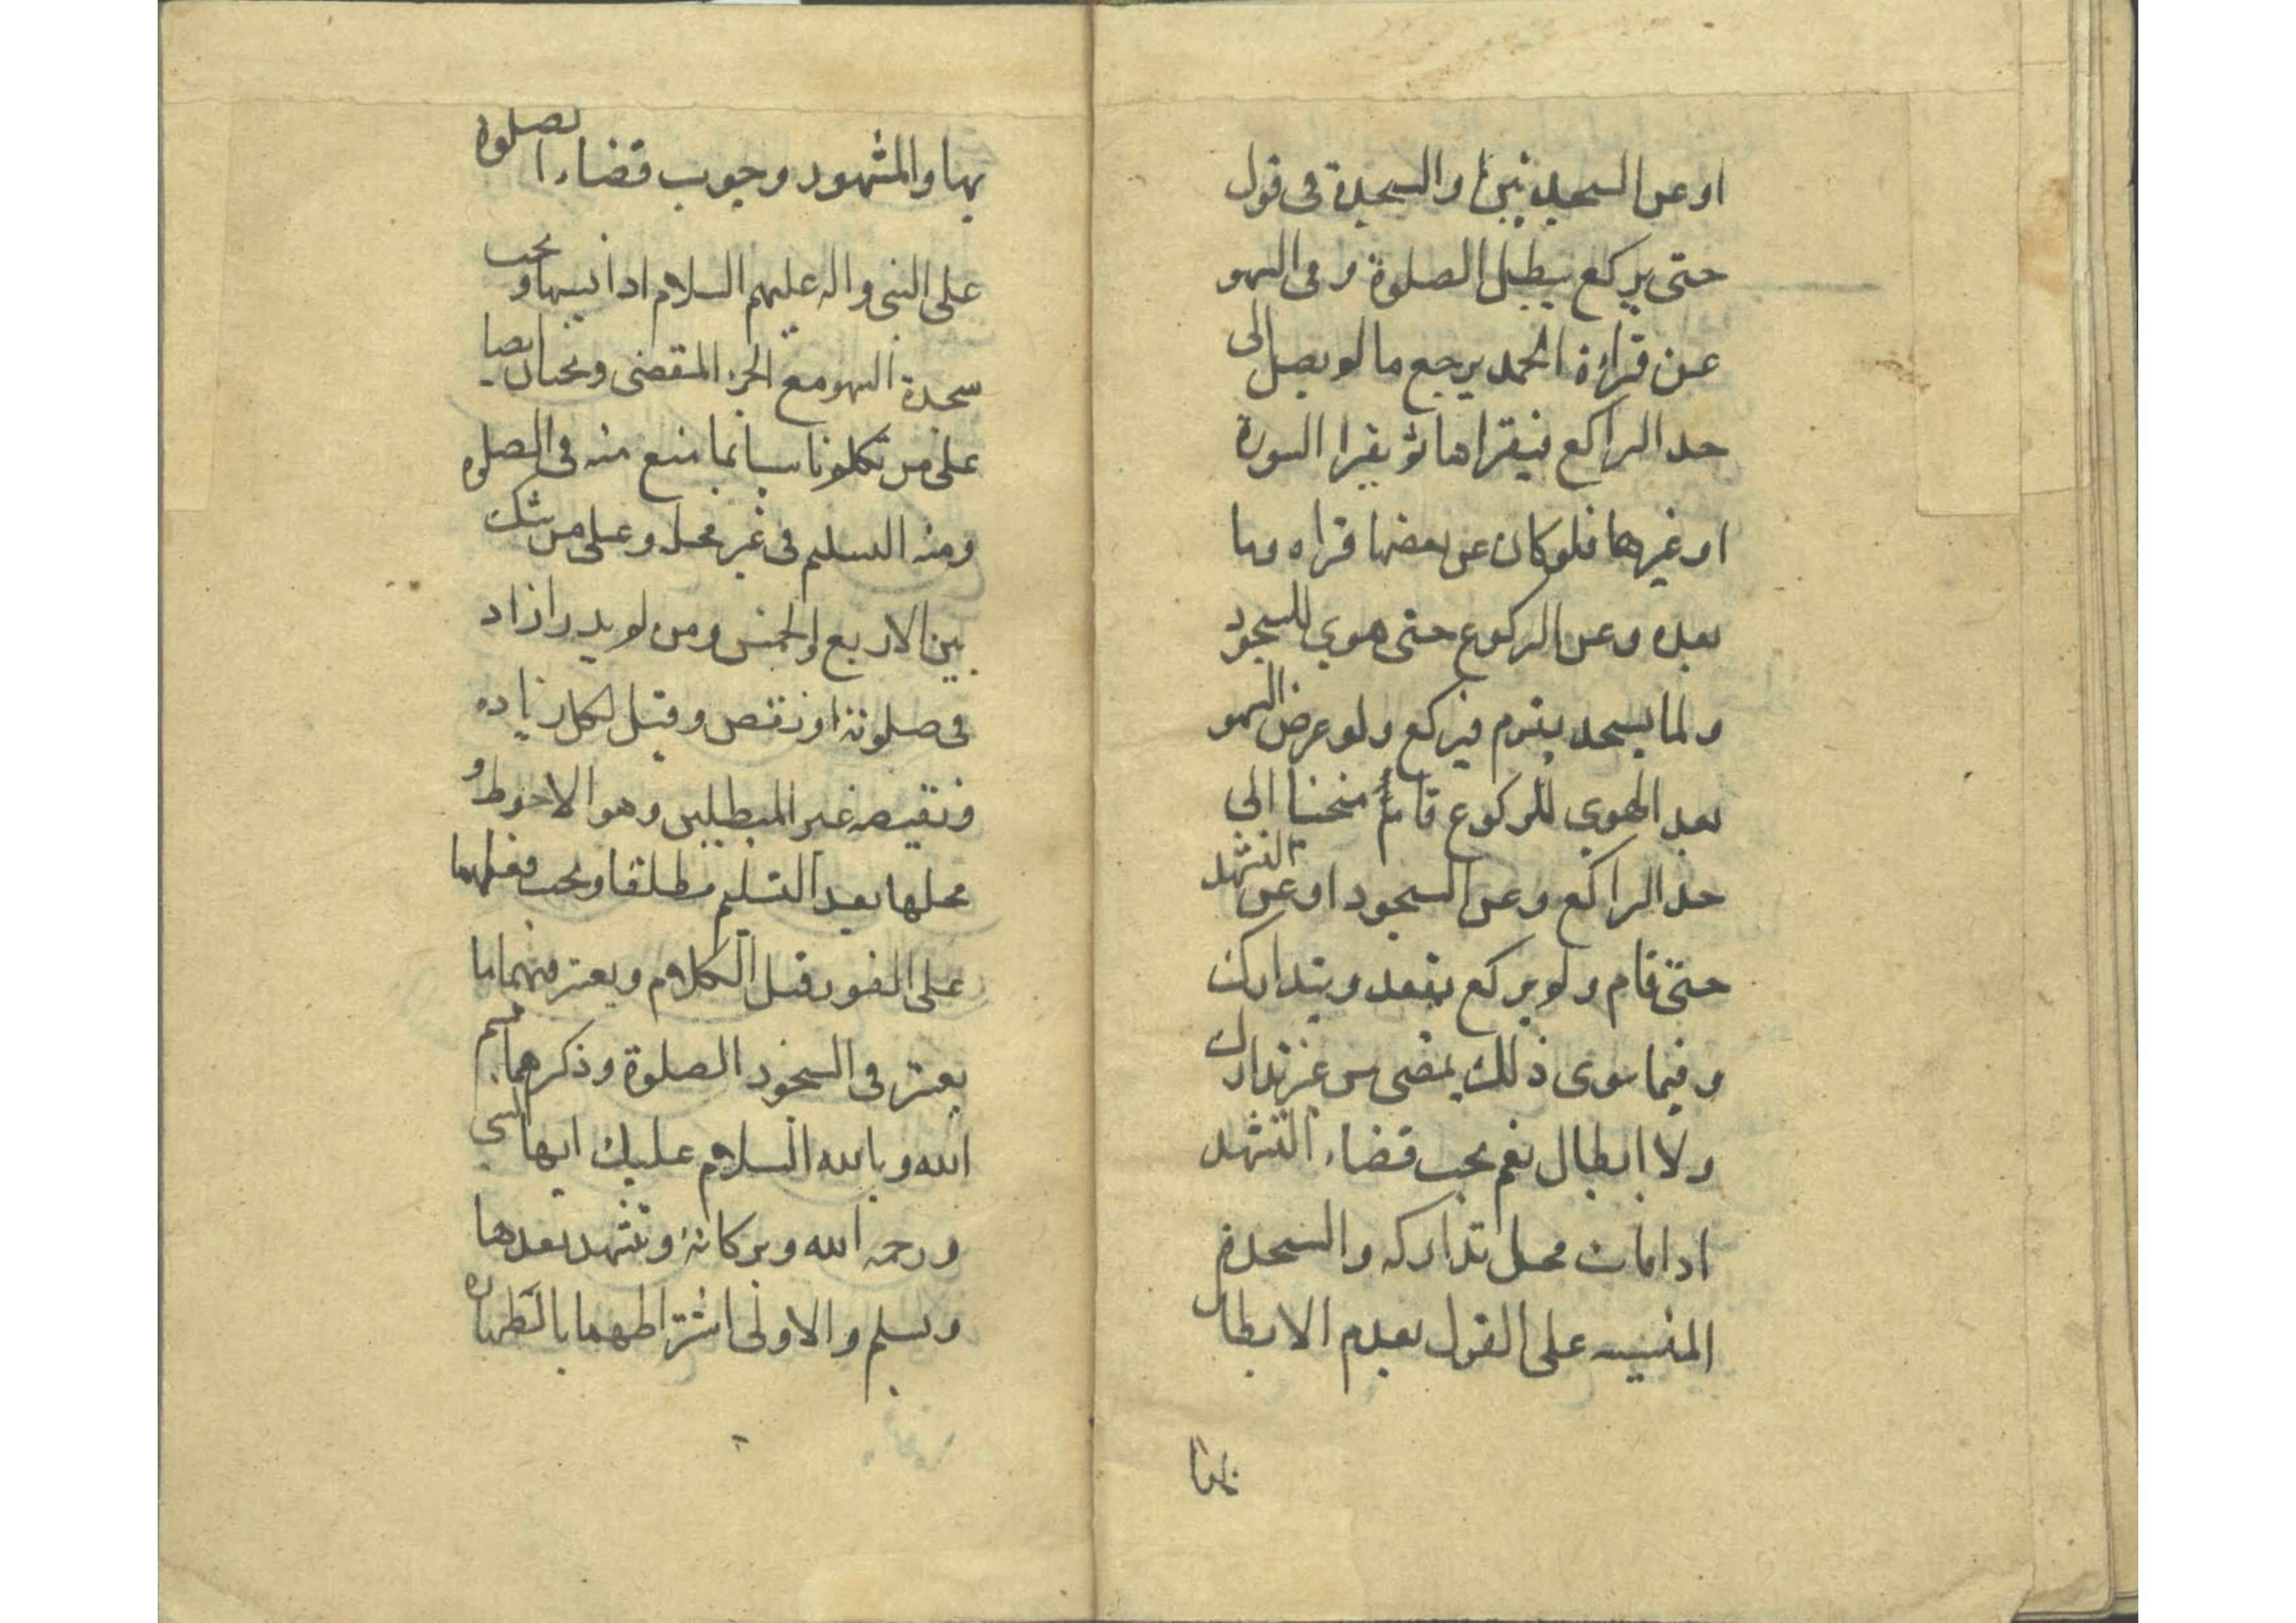 او عن السجدتين او السجدة فى قول
حتى يركع يبطل الصلوة و فى السهو
عن قراءة الحمد يرجع ما لم يصل الى
حد الراكع فيقراها ثم يقرا السورة
او غيرها فلو كان عن بعضها قراه وما
بعده و عن الركوع حتى هوى للسجود
و لما يسجد يقوم فيركع و لو عرض السهو
بعد الهوى للركوع قام منحنيا الى
حد الراكع و عن السجود او عن التشهد
حتى قام و لم يركع يقعد و يتدارك
و فيما سوى ذلك يمضى من غير تدارك
و لا ابطال نعم يجب قضاء التشهد
اذا فات محل تداركه و السجدة
المنسيه على القول بعدم الابطال
بها و المشهور وجوب قضاء الصلوة
على النبى و اله عليهم السلام اذا نسيها و يجب
سجدة السهو مع الجزء المقضى و يجبان ايضا
على من تكلم ناسيا بما منع منه فى الصلوه
و منه التسليم فى غير محله و على من شك
بين الاربع و الخمس و من لم يدر ازاد
فى صلوته او نقص و قيل لكل زياده
و نقيصه غير المبطلين و هو الاحوط و
محلها بعد التسليم مطلقا و يجب فعلهما
على الفور قبل الكلام و يعتبر فيهما ما
يعتبر فى السجود الصلوة و ذكرهما بسم
الله و بالله السلام عليك ايها النبى
و رحمه الله و بركاته و تشهد بعدها
و يسلم و الاولى اشتراطهما بالطهاره